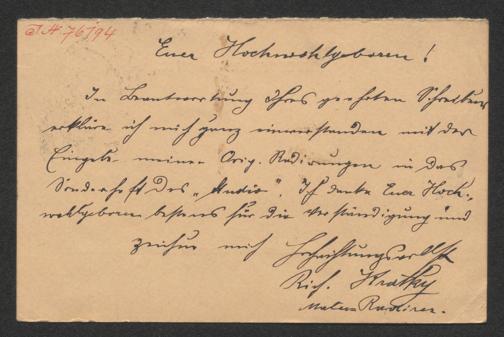 J. N. 76794
Euer Hochwohlgeboren!
In Beantwortung Ihres geehrten Schreibens
erkläre ich mich ganz einverstanden mit der
Eingabe meiner Orig. Radirungen in das
Sonderheft des „Studio“. Ich danke Euer Hoch-
wohlgeboren bestens für die Verständigung und
zeichne mich Hochachtungsvollst
Rich.
Maler Radirer.